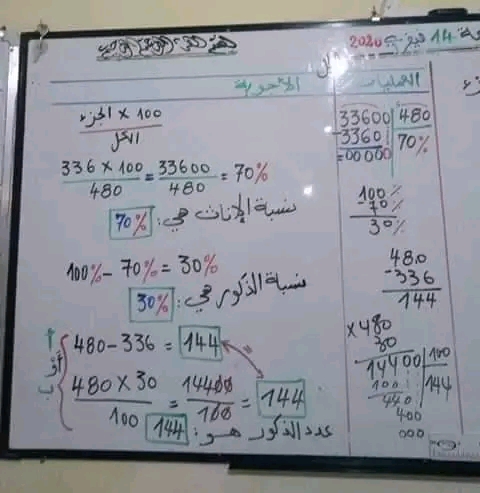 14 فيفري 2020
العمليات
الأجوبة
100 × الجزء
الكل
336 × 100 / 480 = 33600 / 480 = 70%
نسبة الإناث هي: 70%
100% - 70% = 30%
نسبة الذكور هي: 30%
480 - 336 = 144
أو
480 × 30 / 100 = 14400 / 100 = 144
عدد الذكور هو: 144
33600 | 480
-3360 | 70%
=00000
100%
-70%
30%
480
-336
144
×480
30
14400 | 100
100 | 144
440
400
000